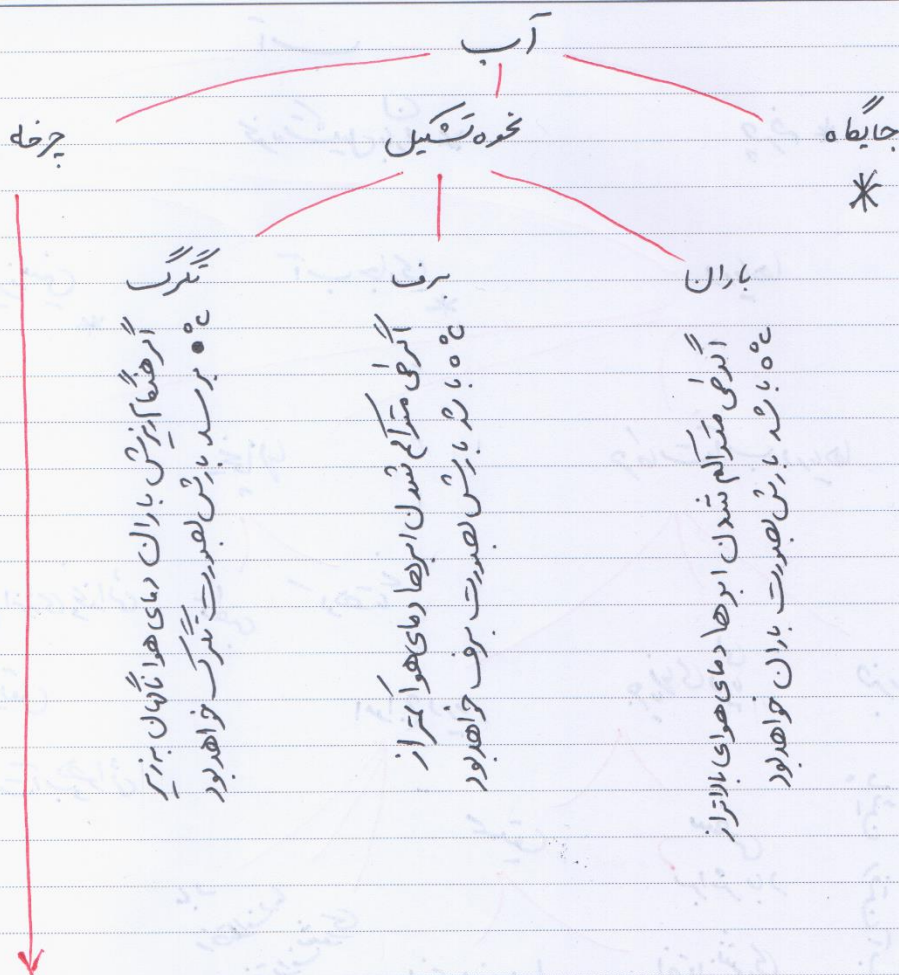 آب
جایگاه
*
نحوه تشکیل
چرخه
باران
اگر طی متراکم شدن ابرها دمای هوای بالاتر از
0°c باشد بارش بصورت باران خواهد بود
برف
اگر طی متراکم شدن ابرها دمای هوا کمتر از
0°c باشد بارش بصورت برف خواهد بود
تگرگ
اگر هنگام ریزش باران دمای هوا ناگهان به زیر
0°c برسد بارش بصورت تگرگ خواهد بود